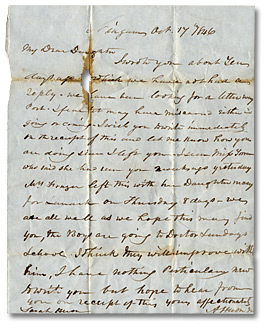 Oct. 17 1846
My Dear Daughter
I wrote you about Ten
days ago think we have not had a
reply we have been looking for a letter every
Post I fear it may have miscarried either in
going or coming I wish you to write immediately
on receipt of this and let me know how you
are doing since I left you I seen Miss Tom
who said she has seen you &
Mrs Frazer left this with her Daughter Mary
for on Thursday 8 days we
are all well as we hope this may find
you, the Boys are going to Doctor Lindsays
School I think they will improve with
him, I have nothing Particular new
to write you but hope to hear from
you on receipt of this yours affectionately
Sarah